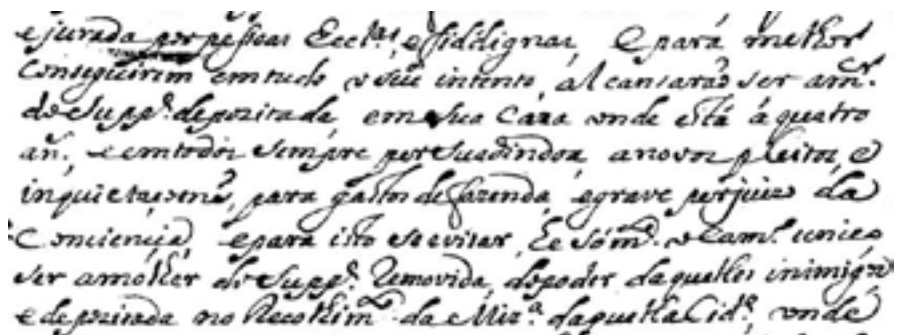 e jurada por pessoas Eccl.as, e fidelignas, E para melhor
Conseguirem em tudo o seu intento, alcansaraõ ser a m.er
do Supp.e depozitada em sua Caza onde está á quatro
an.s, e em todos sempre persuadindoa a novos pleitos, e
inquietasoens, para gastos de fazenda, e grave perjuizo da
Conciencia, e para isto se evitar, he sóm.te o cam.o unico
ser a molher do Supp.e Removida, do poder daquelles inimigos
e depozitada no Recolhim.to da Miz.a daquella Cid.e, onde